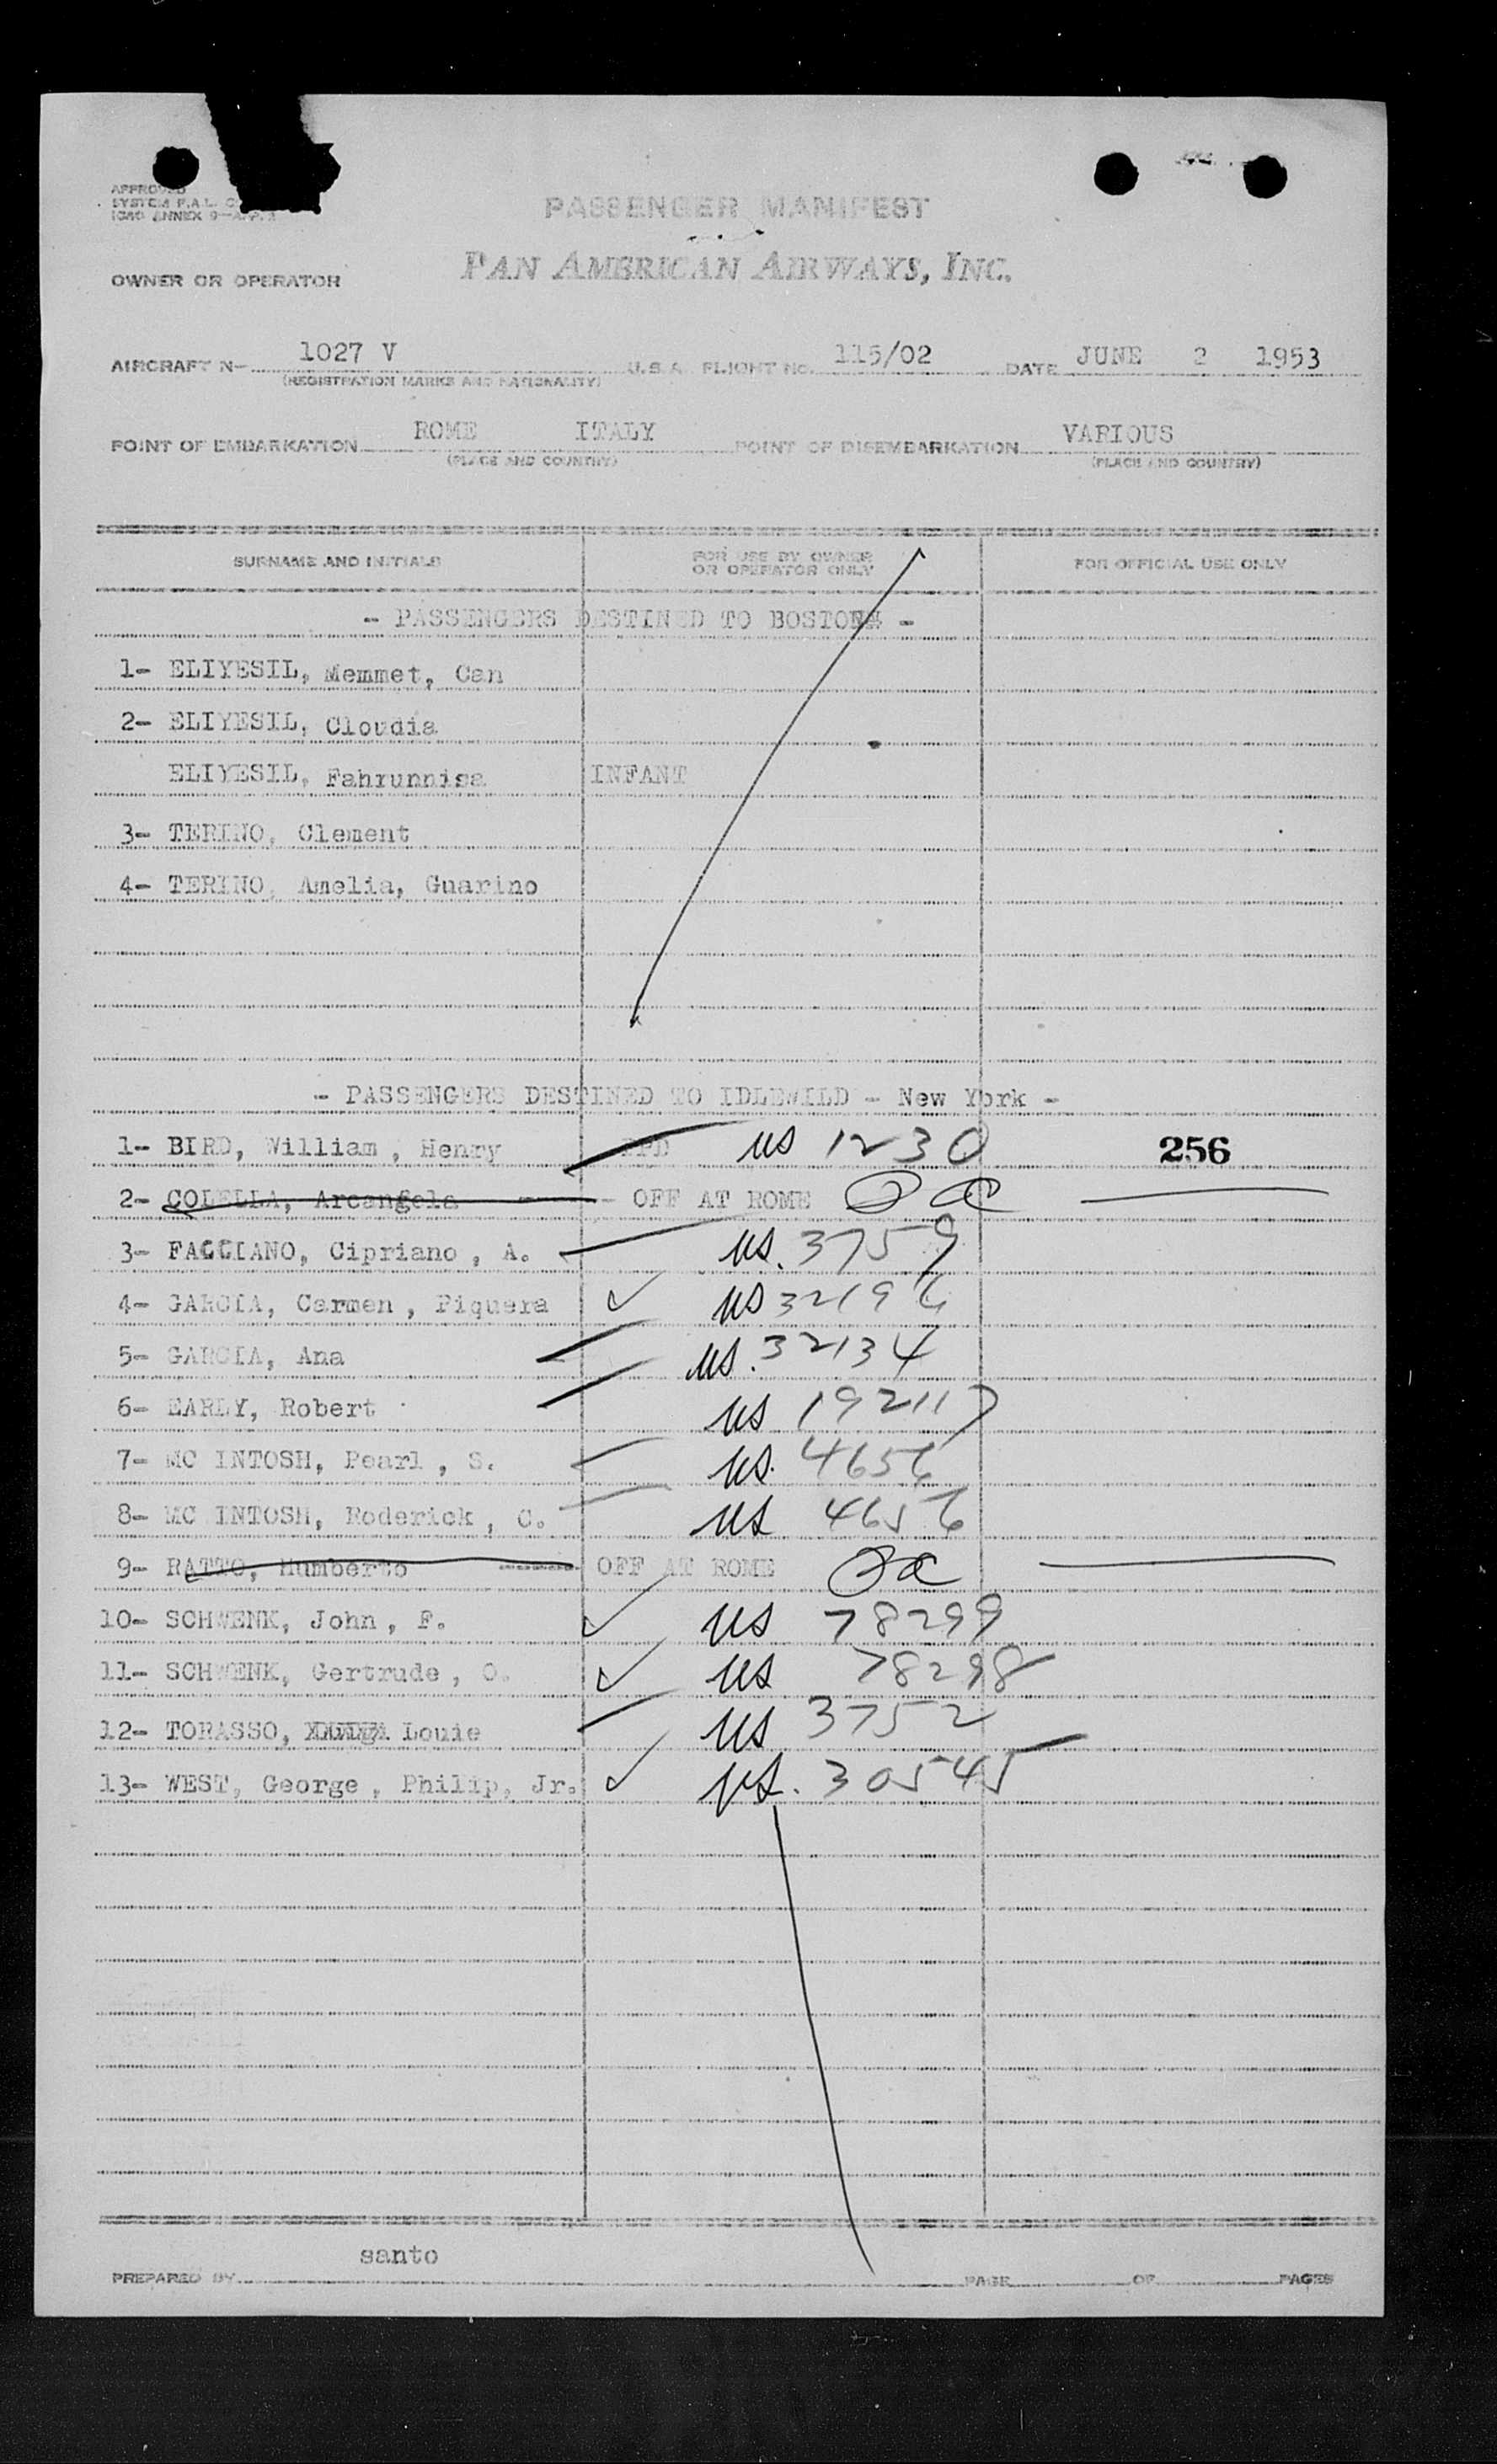 APPROVED
SYSTEM P.A.L.
ICAO ANNEX 9-APP. 3
PASSENGER MANIFEST
OWNER OR OPERATOR PAN AMERICAN AIRWAYS, INC.
AIRCRAFT N- 1027 V U.S.A. FLIGHT NO. 115/02 DATE JUNE 2 1953
(REGISTRATION MARKS AND NATIONALITY)
POINT OF EMBARKATION ROME ITALY POINT OF DISEMBARKATION VARIOUS
(PLACE AND COUNTRY) (PLACE AND COUNTRY)
SURNAME AND INITIALS FOR USE BY OWNER OR OPERATOR ONLY FOR OFFICIAL USE ONLY
- PASSENGERS DESTINED TO BOSTON -
1- ELIYESIL, Memmet, Can
2- ELIYESIL, Cloudia
ELIYESIL, Fahrunnisa INFANT
3- TERINO, Clement
4- TERINO, Amelia, Guarino
- PASSENGERS DESTINED TO IDLEWILD - New York -
1- BIRD, William, Henry PPD US 1230 256
2- COLELLA, Arcangela - OFF AT ROME
3- FACCIANO, Cipriano, A. US. 3759
4- GARCIA, Carmen, Piquera US 32196
5- GARCIA, Ana US. 32134
6- EARLY, Robert US 192117
7- MC INTOSH, Pearl, S. US. 4656
8- MC INTOSH, Roderick, C. US 4656
9- RATTO, Humberto ------ OFF AT ROME
10- SCHWENK, John, F. US 78299
11- SCHWENK, Gertrude, O. US 78298
12- TORASSO, Louie US 3752
13- WEST, George, Philip, Jr. US. 30545
santo
PREPARED BY PAGE OF PAGES